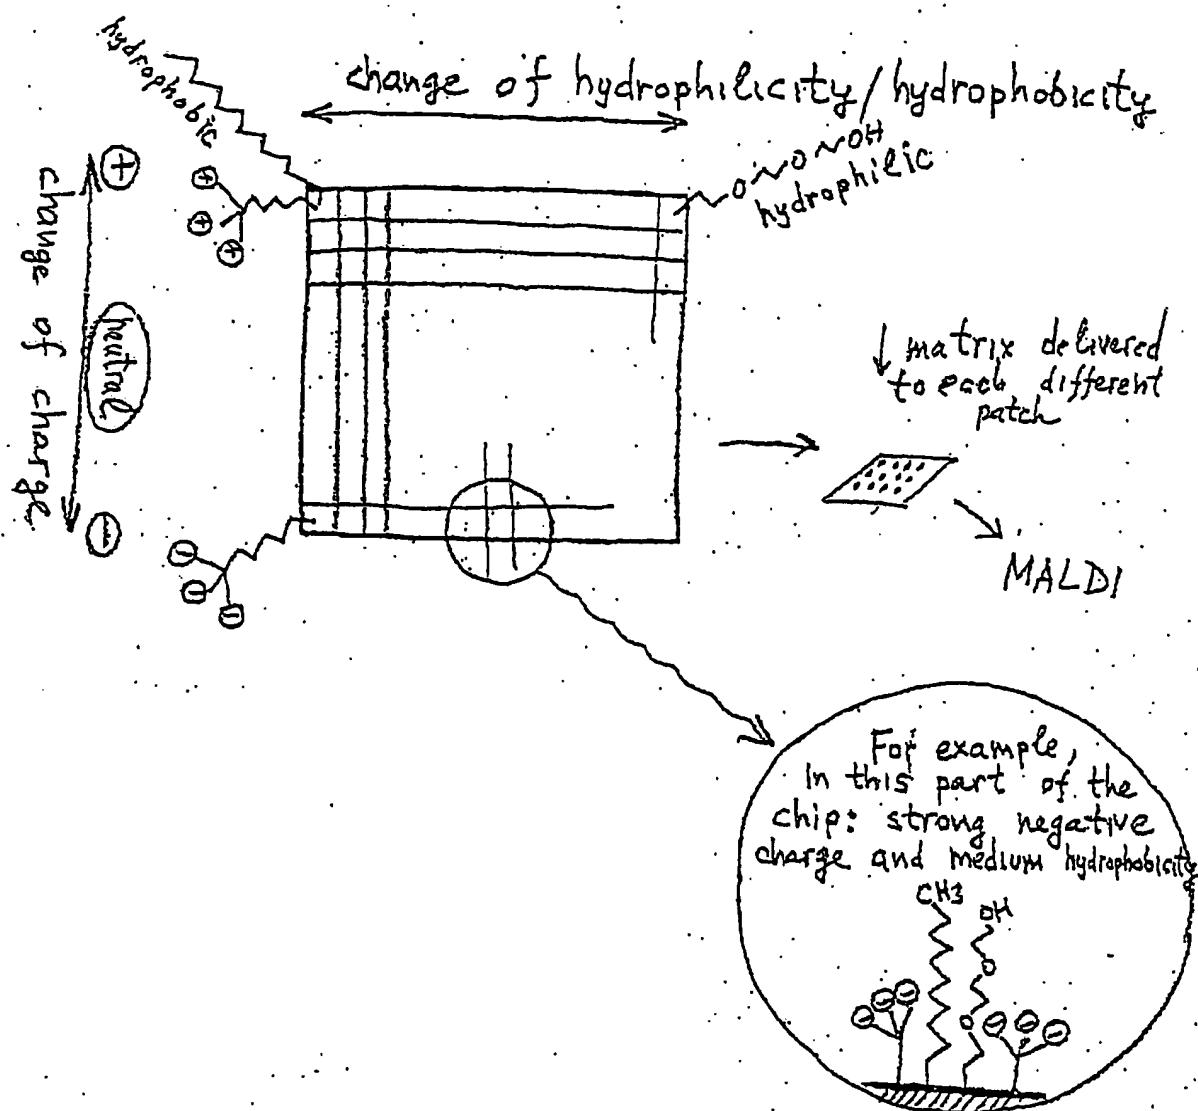 hydrophobic
change of hydrophilicity/hydrophobicity
O O OH
hydrophilic
+
+
+
+
change of charge
neutral
−
−
−
−
↓ matrix delivered
to each different
patch
MALDI
For example,
in this part of the
chip: strong negative
charge and medium hydrophobicity
CH3
OH
O
O
− − −
− − −